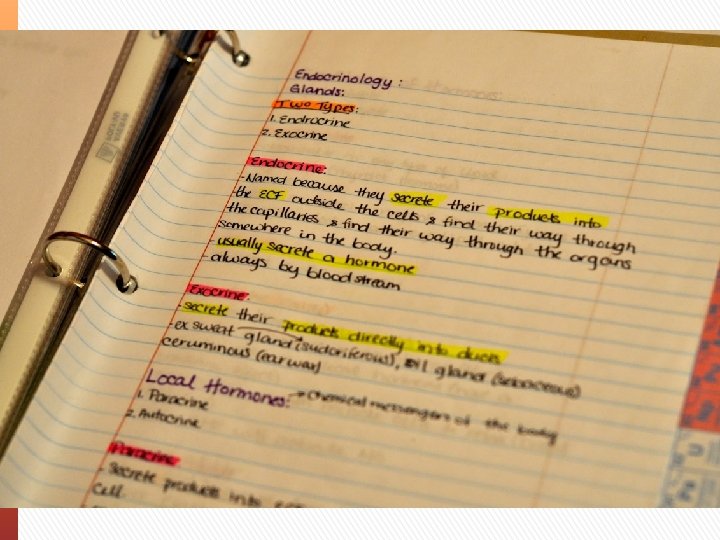 Endocrinology:
Glands:
Two Types:
1. Endrocrine
2. Exocrine
Endocrine:
-Named because they secrete their products into
-the ECF outside the cells & find their way through
the capillaries, & find their way through the organs
somewhere in the body.
-usually secrete a hormone
-always by bloodstream
Exocrine:
-secrete their products directly into ducts
-ex sweat gland (sudoriferous), oil gland (sebaceous)
ceruminous (ear wax)
Local Hormones: → chemical messengers of the body
1. Paracrine
2. Autocrine
Paracrine
- Secrete products into
cell.